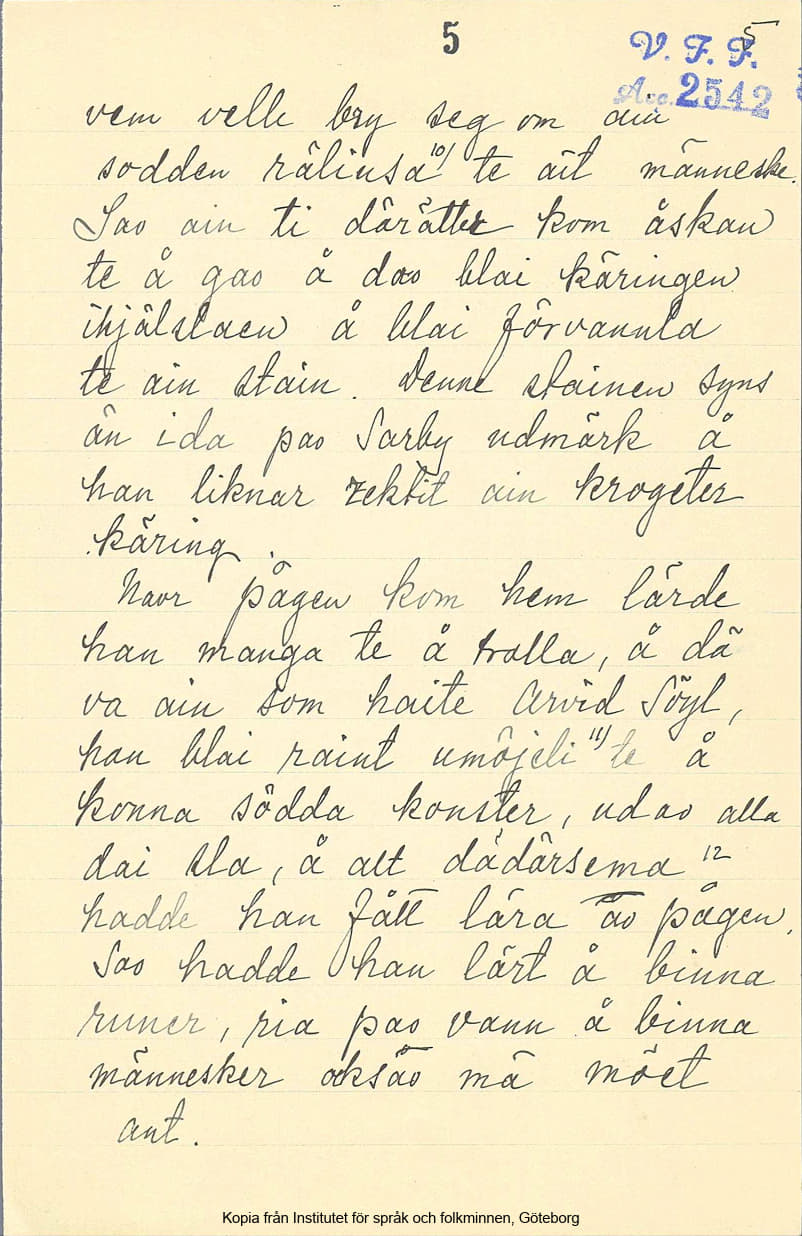 5
5
V. F. F.
Acc. 2542
vem velle bry seg om ain
sodden rälinsä 10) te äit människe.
Sao ain ti därätter kom åskan
te å gao å dao blai käringen
ihjälslaen å blai förvannla
te ain stain. Denne stainen syns
än i da pao Sarby udmärk å
han liknar rektit ain krogeter
käring.
Naor pågen kom hem lärde
han manga te å trolla, å dä
va ain som haite Arvid Söyl,
han blai raint umöjeli 11) te å
konna södda konster, udao alla
dai sla, å alt dädärsema 12
hadde han fått lära ao pågen.
Sao hadde han lärt å binna
runer, ria pao vann å binna
människer åksao mä möet
ant.
Kopia från Institutet för språk och folkminnen, Göteborg